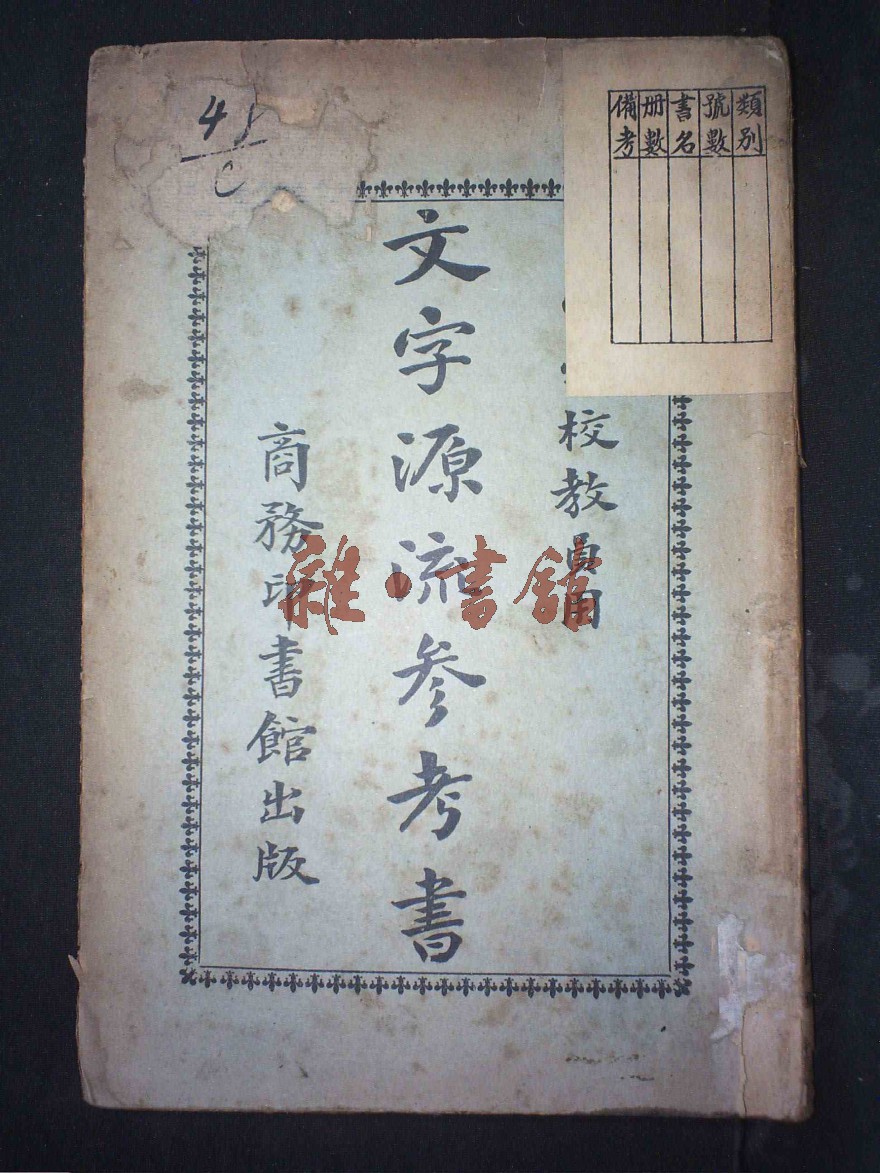 類別
號數
書名
册數
備考
校教員用
文字源流参考書
商務印書館出版
雜·書館
4